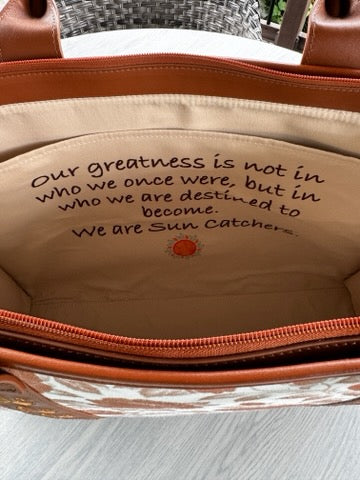 Our greatness is not in
who we once were, but in
who we are destined to
become.
We are Sun Catchers.